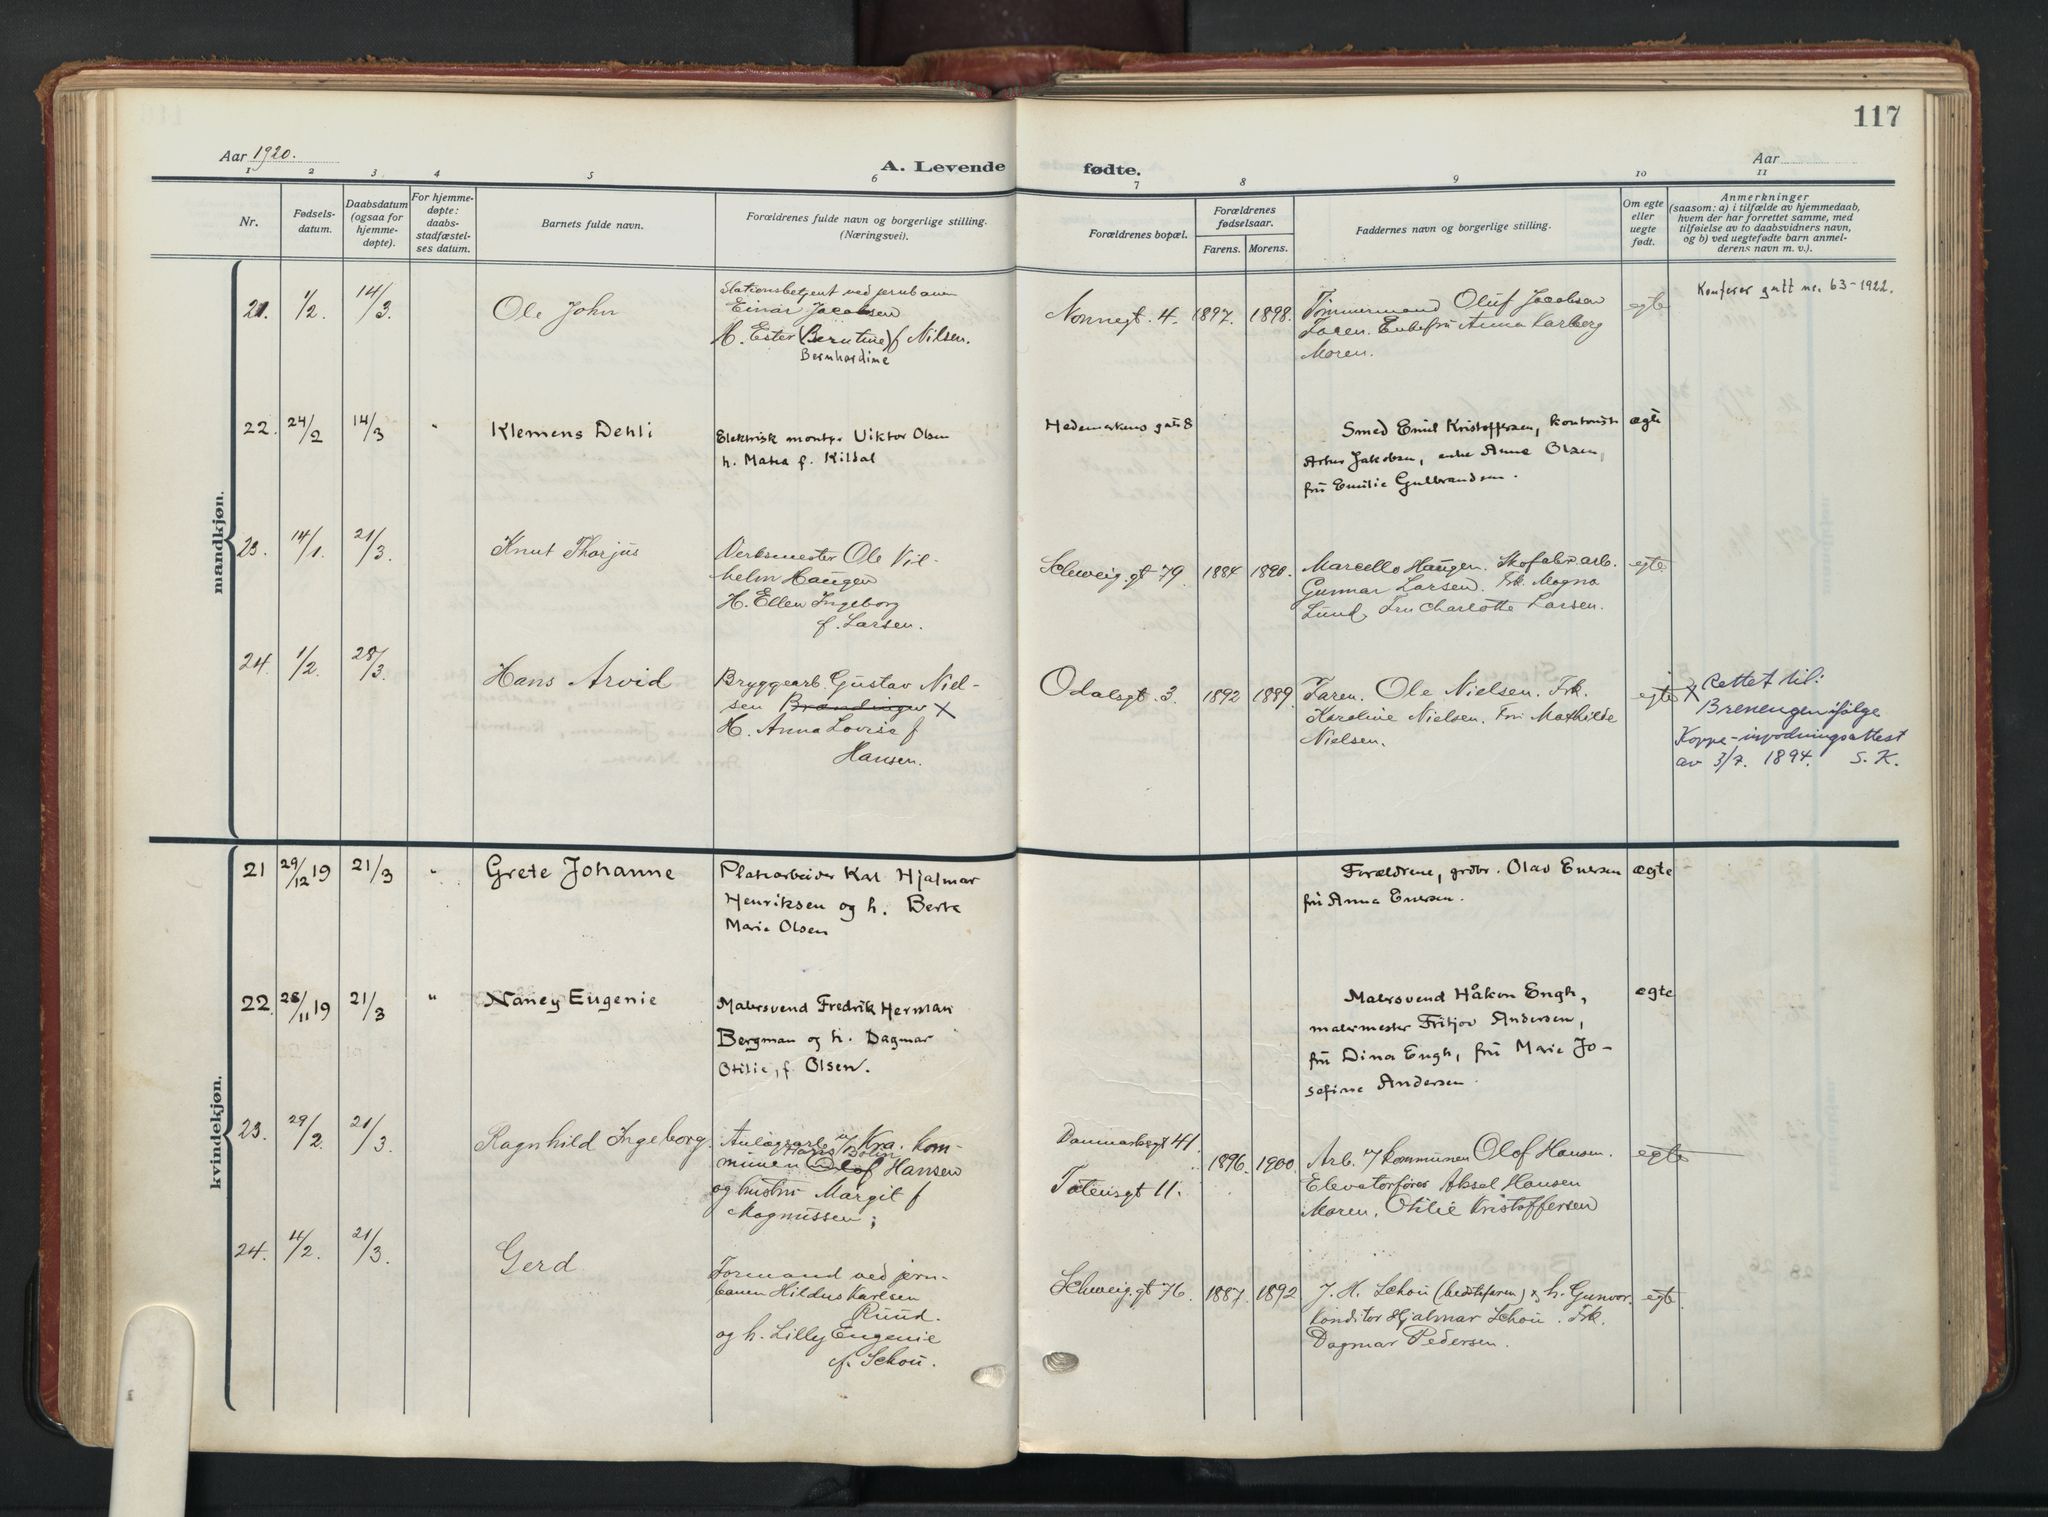 117
Aar 1920.
A. Levende fødte.
Aar
1 2 3 4 5 6 7 8 9 10 11
Nr.
Fødsels-
datum.
Daabsdatum
(ogsaa for
hjemme-
døpte).
For hjemme-
døpte:
daabs-
stadfæstel-
ses datum.
Barnets fulde navn.
Forældrenes fulde navn og borgerlige stilling.
(Næringsvei).
Forældrenes bopæl.
Forældrenes
fødselsaar.
Farens. Morens.
Faddernes navn og borgerlige stilling.
Om egte
eller
uegte
født.
Anmerkninger
(saasom: a) i tilfælde av hjemmedaab,
hvem der har forrettet samme, med
tilføielse av to daabsvidners navn,
og b) ved uegtefødte barn anmel-
derens navn m. v.).
mandkjøn.
21. 1/2. 14/3. Ole John
Stationsbetjent ved jernbanen
Einar Jacobsen
H. Ester (Berntine) f Nilsen.
Bernhardine
Nonnegt. 4. 1897. 1898.
Tømmermand Oluf Jacobsen
Faren. Enkefru Anna Karberg
Moren.
egte
Konferer gutt nr. 63-1922.
22. 24/2 14/3 " Klemens Dehli
Elektrisk montør Viktor Olsen
h. Matea f. Kildal
Hedemarkens gate 8
Smed Emil Kristoffersen, kontorist
Artur Jakobsen, enke Anne Olsen,
fru Emilie Gulbrandsen.
ægte
23. 14/1. 21/3. Knut Thorjus
Verksmester Ole Vil-
helm Haugen
H. Ellen Ingeborg
f. Larsen.
Schweig. gt 79. 1884 1890.
Marcello Haugen. Skofabr. arb.
Gunnar Larsen. Frk. Magna
Lund Fru Charlotte Larsen.
egte
24. 1/2. 28/3. Hans Arvid
Bryggearb. Gustav Niel-
sen Brandinger X
H. Anna Lovise f
Hansen.
Odalsgt. 3. 1892 1889.
Faren. Ole Nielsen. Frk.
Karoline Nielsen. Fru Mathilde
Nielsen.
egte
X Rettet til:
Brenengen ifølge
Koppe-inpodningsattest
av 3/7. 1894. S. K.
kvindekjøn.
21 29/12 19 21/3 " Grete Johanne
Platearbeider Karl Hjalmar
Henriksen og h. Berte
Marie Olsen
Forældrene, grdbr. Olav Enersen
fru Anna Enersen.
ægte
22. 28/11 19 21/3 " Nancy Eugenie
Malersvend Fredrik Herman
Bergman og h. Dagmar
Otilie, f. Olsen.
Malersvend Håkon Engh,
malermester Fritjov Andersen,
fru Dina Engh, fru Marie Jo-
sefine Andersen.
ægte
23. 29/2. 21/3. Ragnhild Ingeborg.
Anlægsarb. v/ Kra. kom-
Hans Bolin
munen Olof Hansen
og hustru Margit f
Magnussen;
Danmarksgt 41.
Totensgt 11.
1896. 1900.
Arb. v/ kommunen Olof Hansen.
Elevatorfører Aksel Hansen
Moren. Otilie Kristoffersen
egte
24. 4/2. 21/3. Gerd
Formand ved jern-
banen Hildus Karlsen
Ruud.
og h. Lilly Eugenie
f. Schou.
Schweig. gt 76. 1887. 1892
J. H. Schou (bedstefaren) & h. Gunvor.
Konditor Hjalmar Schou. Frk.
Dagmar Pedersen.
egte.